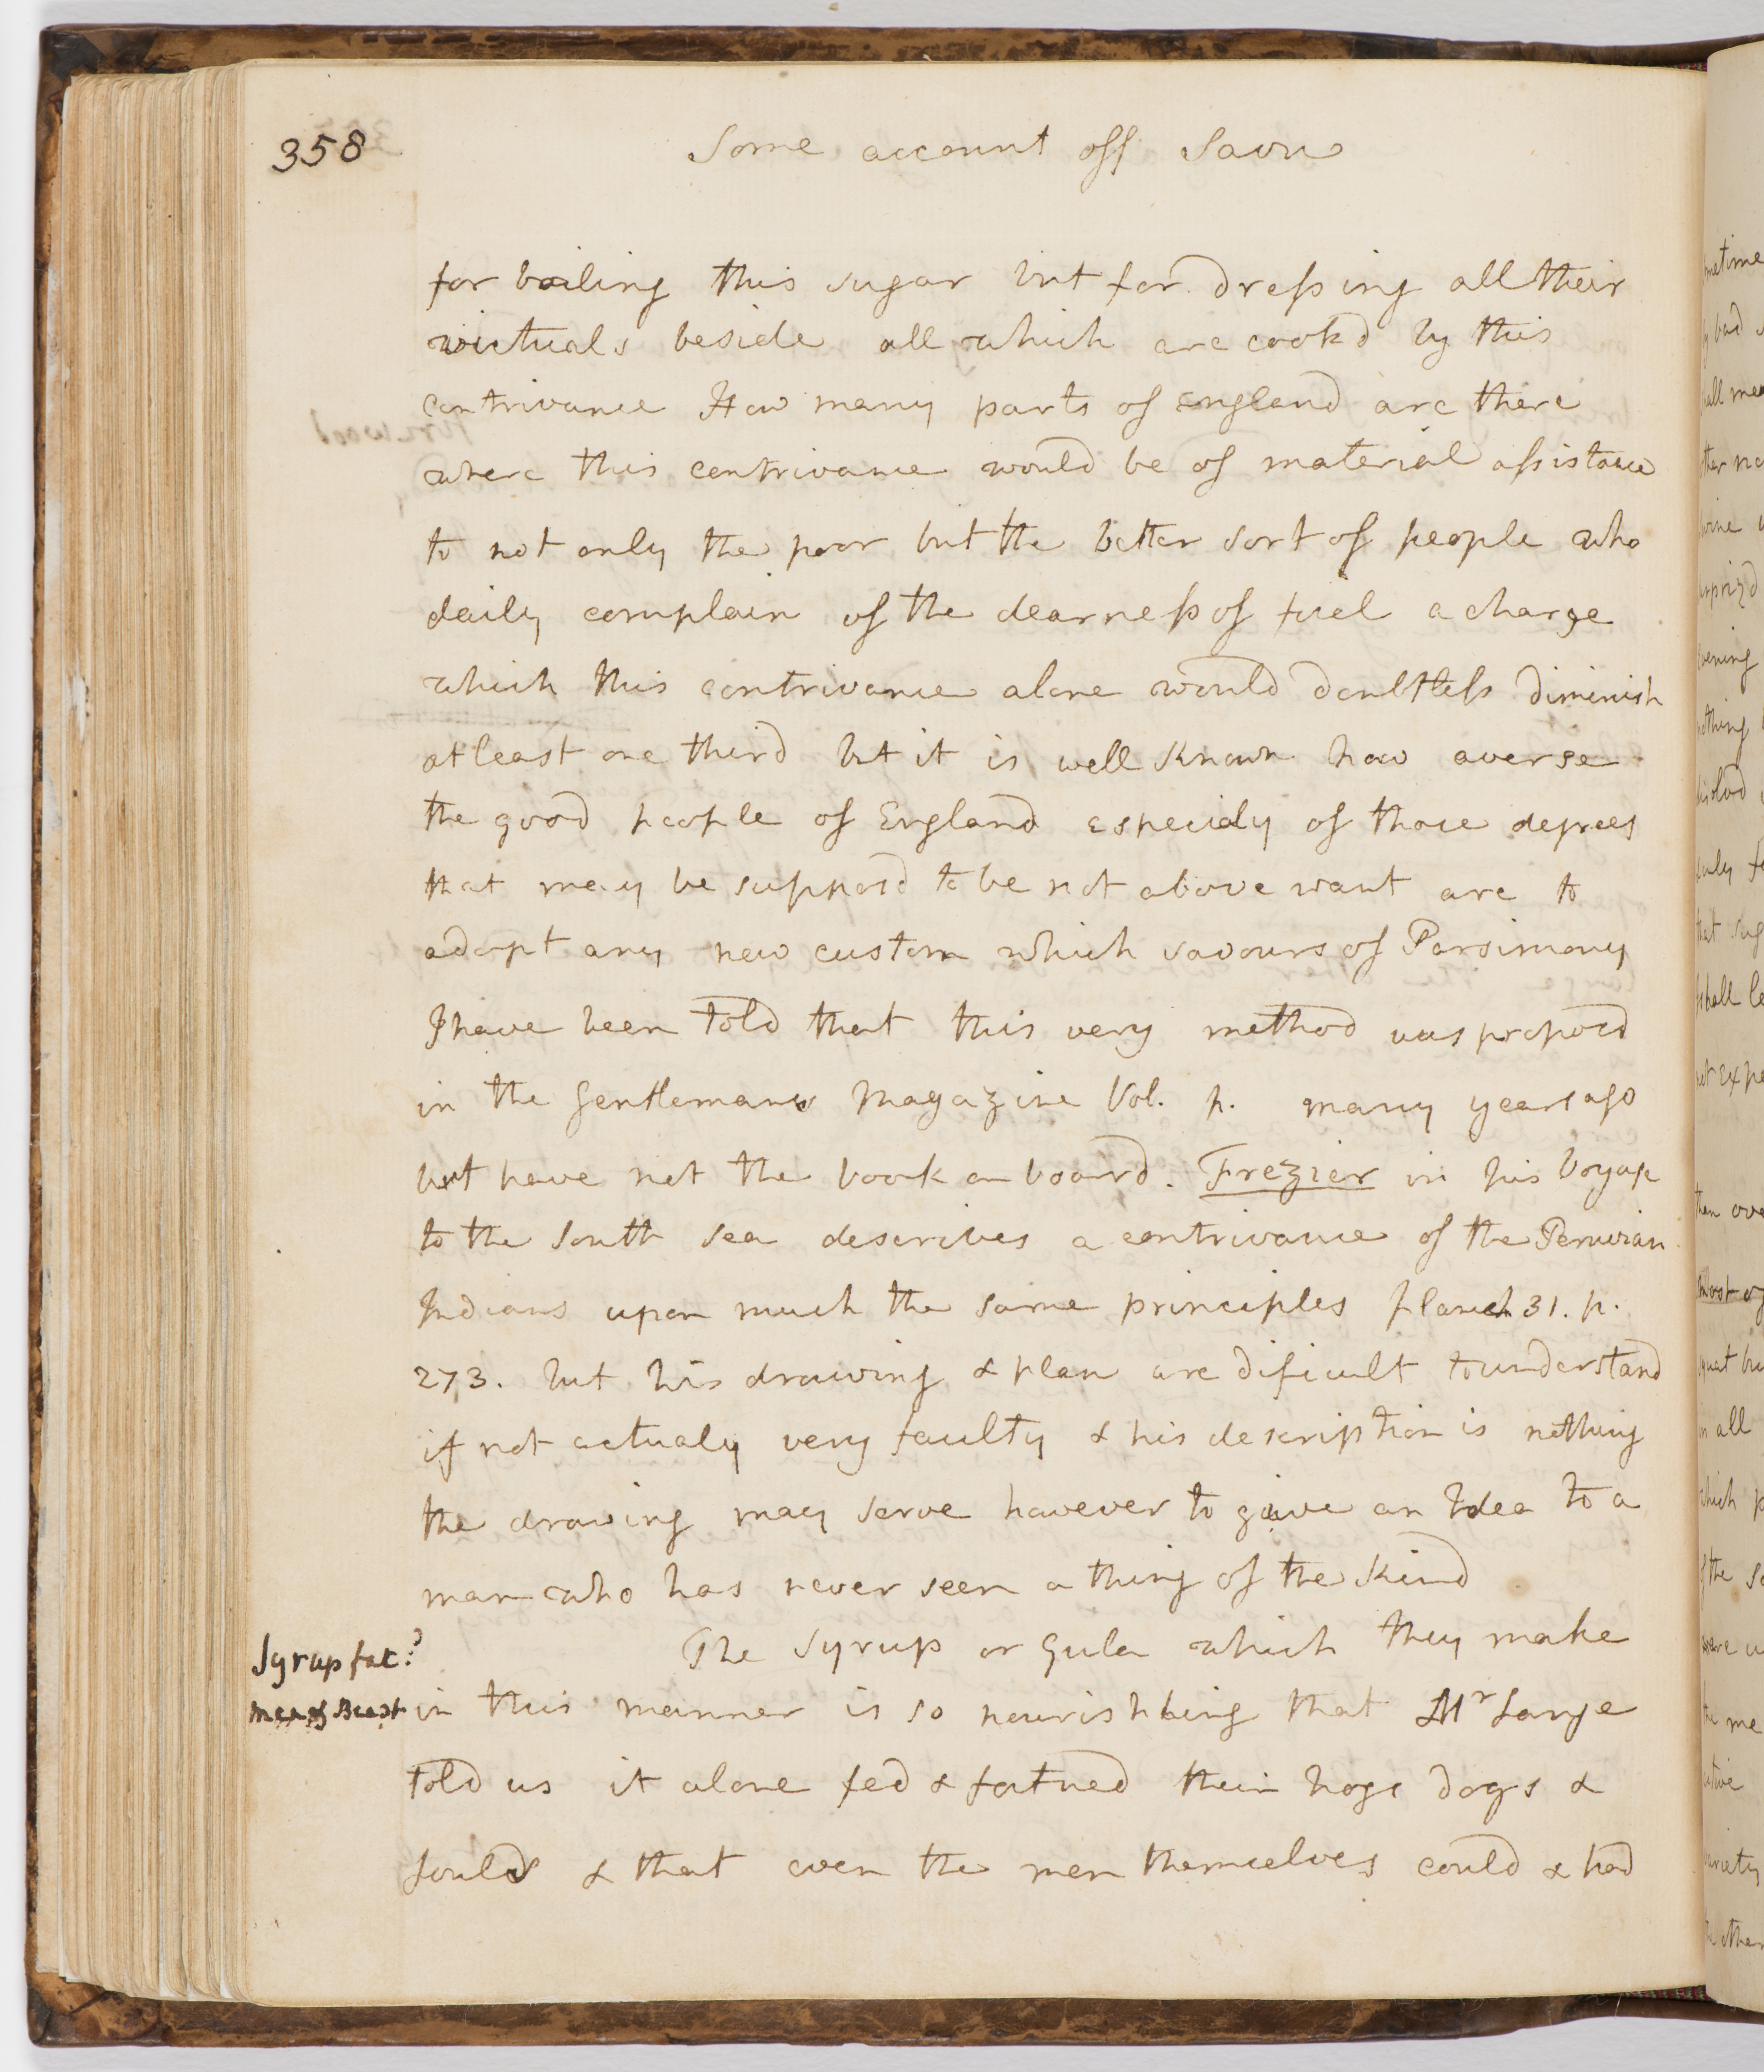 358
Some account off Savu
for boiling this sugar but for dressing all their
victuals beside all which are cookd by this
contrivance How many parts of England are there
where this contrivance would be of material assistance
to not only the poor but the better sort of people who
daily complain of the dearness of fuel a charge
which this contrivance alone would doubtless diminish
at least one third but it is well known how averse
the good people of England especialy of those degrees
that may be supposd to be not above want are to
adopt any new custom which savours of Parsimony
I have been told that this very method was proposd
in the Gentlemans Magazine Vol. p. many years ago
but have not the book on board. Frezier in his Voyage
to the South Sea describes a contrivance of the Peruvian
Indians upon much the same principles planch 31. p.
273. but his drawing & plan are dificult to understand
if not actualy very faulty & his description is nothing
the drawing may serve however to give an Idea to a
man who has never seen a thing of the kind
The Syrup or Gula which they make
Syrup fat:?
men & Beast
in this manner is so nourishing that Mr Lange
told us it alone fed & fatned their hogs dogs &
fouls & that even the men themselves could & had